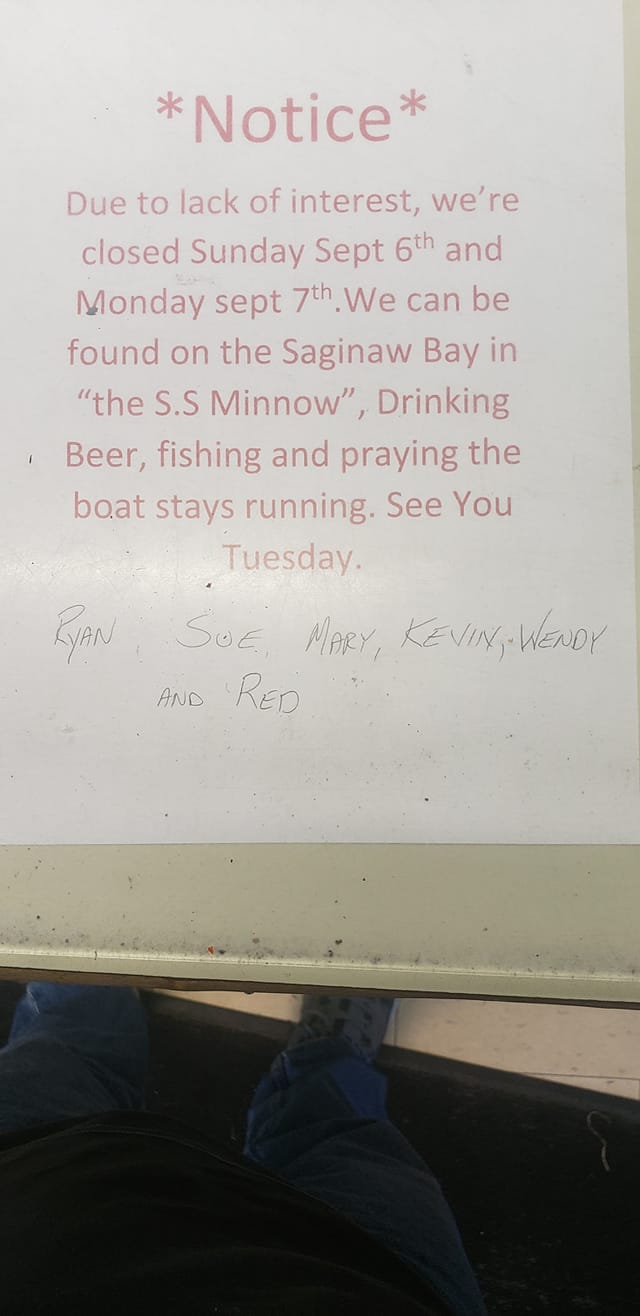 *Notice*
Due to lack of interest, we’re
closed Sunday Sept 6th and
Monday sept 7th.We can be
found on the Saginaw Bay in
“the S.S Minnow”, Drinking
Beer, fishing and praying the
boat stays running. See You
Tuesday.
RYAN, SUE, MARY, KEVIN, WENDY
AND RED